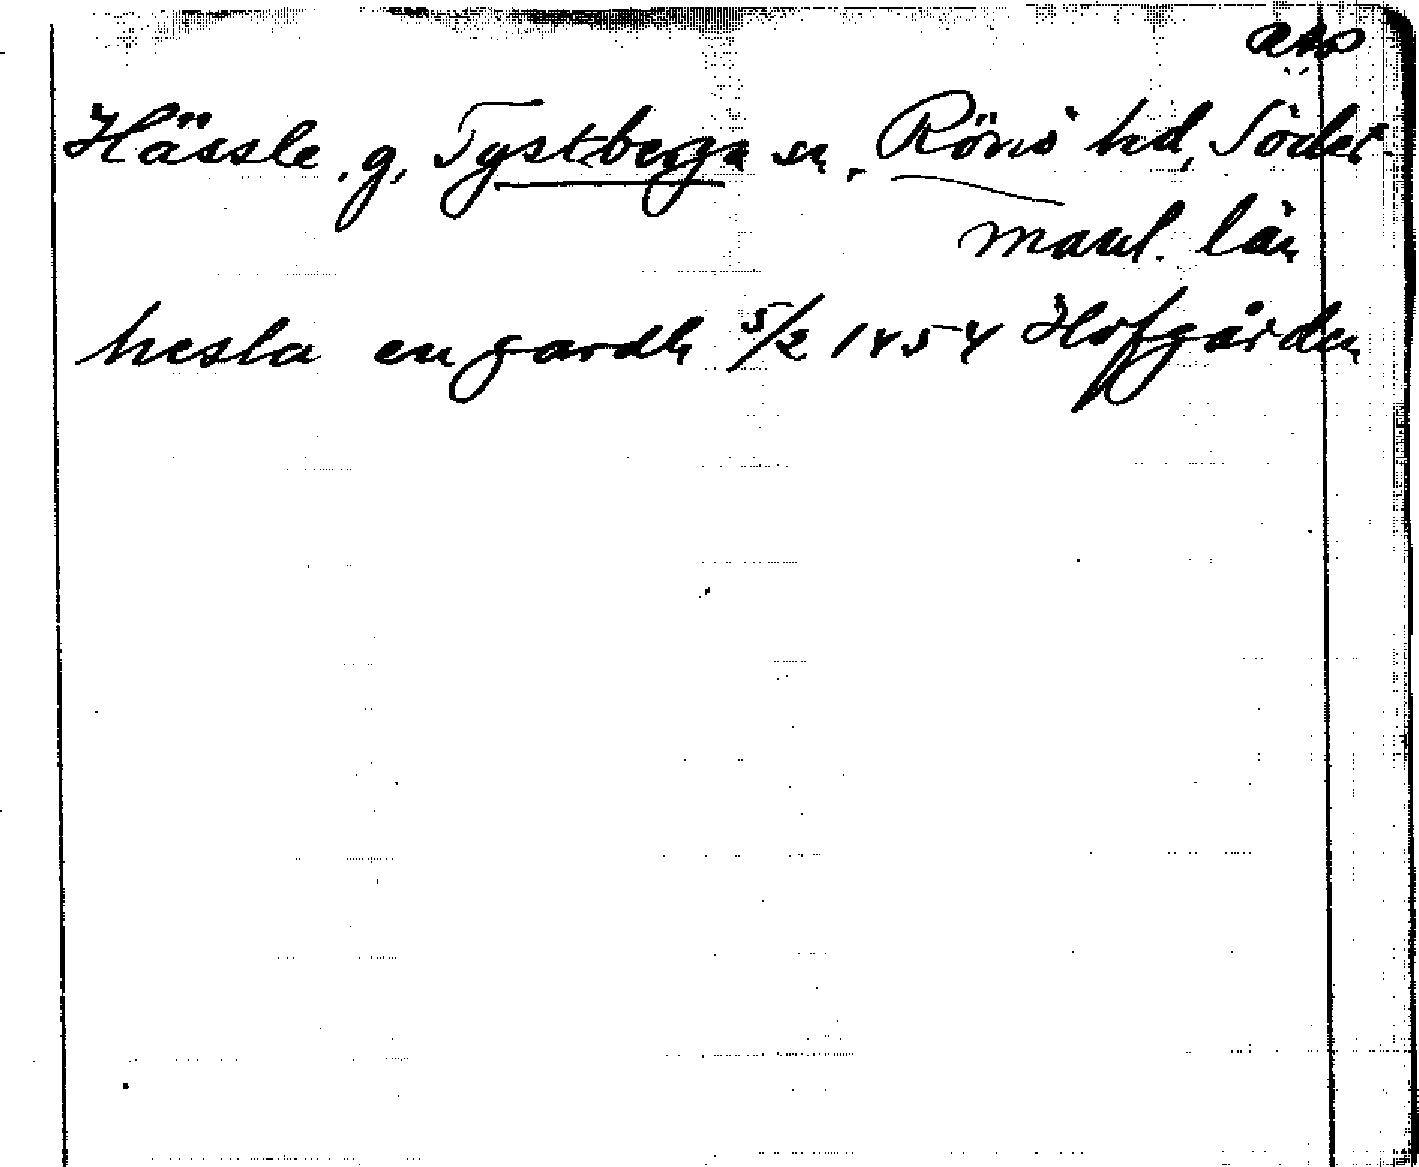 Hässle, g, Tystberga sn, Rönö hd, Söder-
manl. län
hesla en gardh 5/2 1454 Hofgården